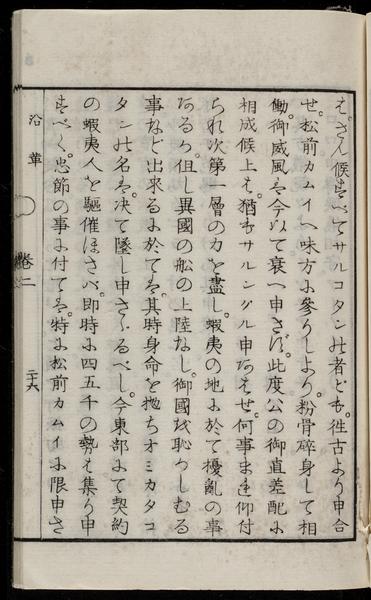 えざん候すべてサルコタンの者ども往古より申合
せ。松前カムイへ味方に參りしより。粉骨碎身して相
働。御威風を今以て衰へ申さず。此度公の御直差配に
相成候上は。猶サルングル申あはせ。何事ま仰付
られ次第一層の力を盡し。蝦夷の地に於て擾亂の事
あるか。但し異國の船の上陸なし。御國を恥かしむる
事など出來るに於ては。其時身命を抛ちオミカタコ
タンの名を。決て墜し申さゞるべし。今東部にて契約
の蝦夷人を驅催ほさば。即時に四五千の勢は集り申
すべく。忠節の事に付ては。特に松前カムイに限申さ
沿革
卷二
二十六